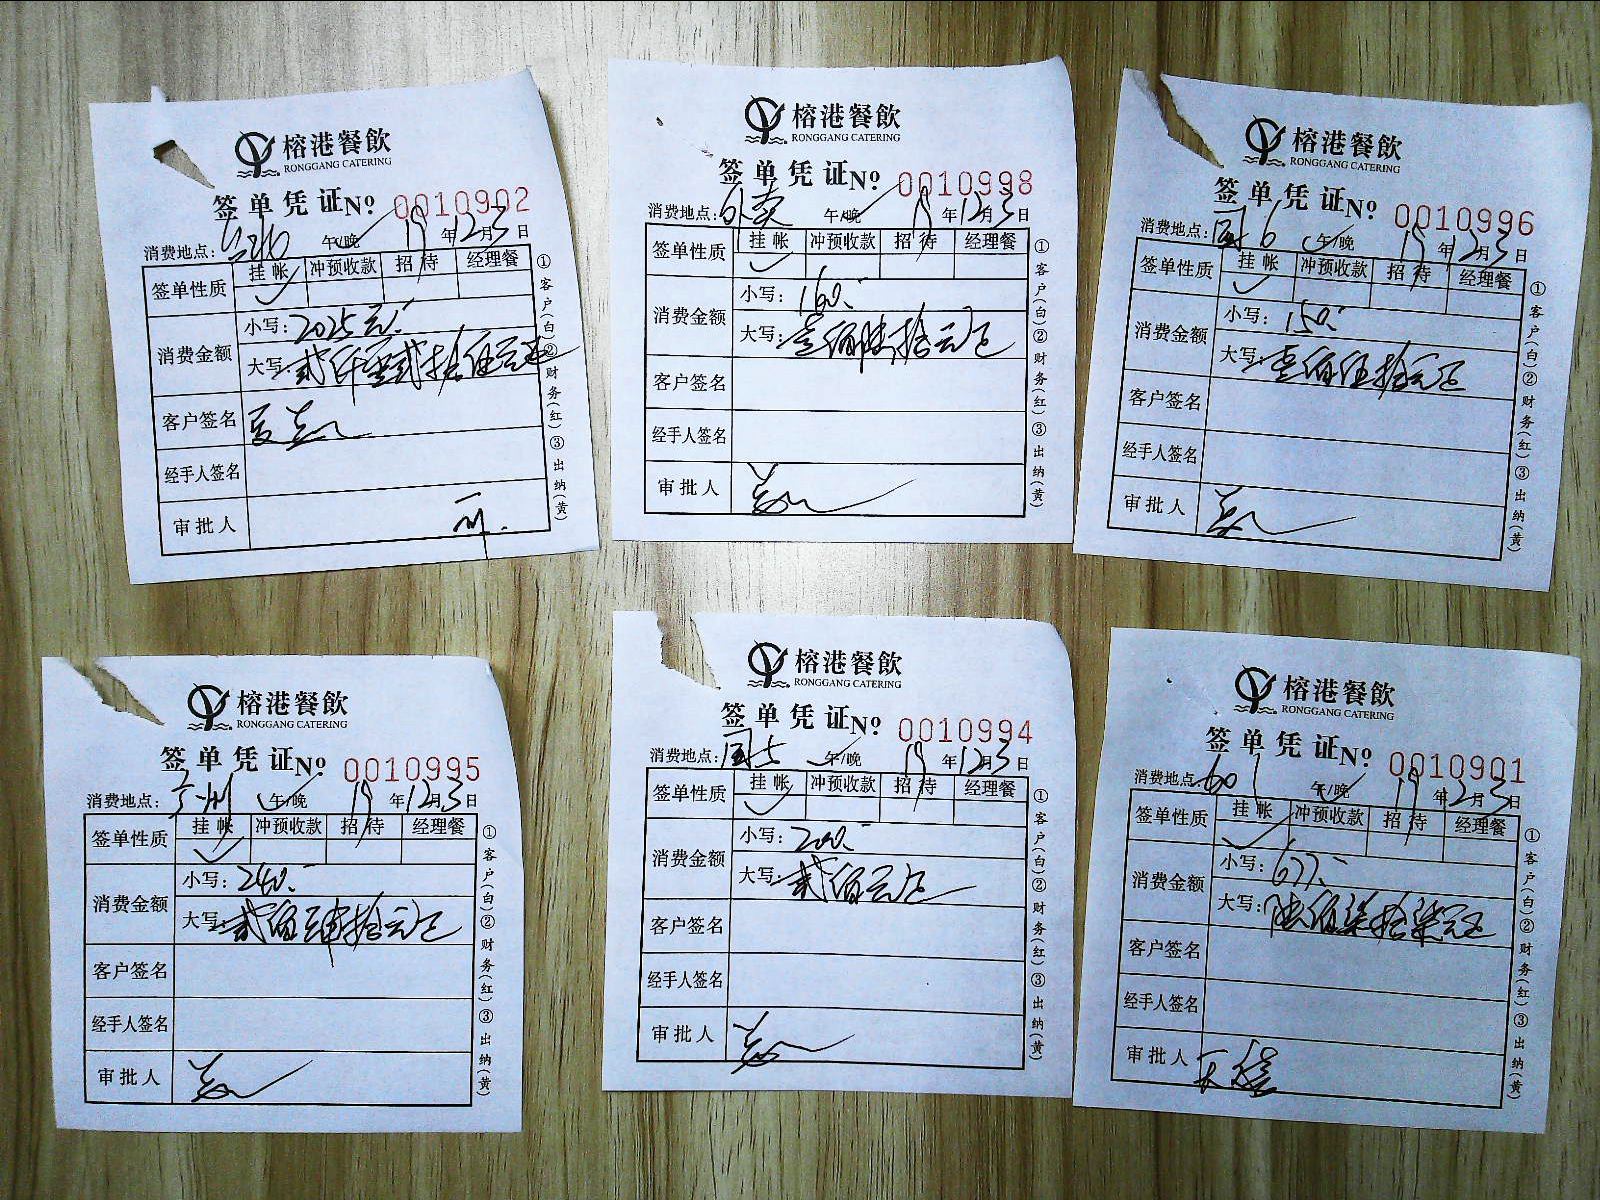 榕港餐飲
RONGGANG CATERING
签单凭证№ 0010902
消费地点: 午/晚 19年12月3日
签单性质 挂帐 冲预收款 招待 经理餐
消费金额 小写: 2025元.
大写: 贰仟零贰拾伍元正
客户签名
经手人签名
审批人
①客户(白)②财务(红)③出纳(黄)
榕港餐飲
RONGGANG CATERING
签单凭证№ 0010998
消费地点: 外卖 午/晚 19年12月3日
签单性质 挂帐 冲预收款 招待 经理餐
消费金额 小写: 160.
大写: 壹佰陆拾元正
客户签名
经手人签名
审批人
①客户(白)②财务(红)③出纳(黄)
榕港餐飲
RONGGANG CATERING
签单凭证№ 0010996
消费地点: 6 午/晚 19年12月3日
签单性质 挂帐 冲预收款 招待 经理餐
消费金额 小写: 150.
大写: 壹佰伍拾元正
客户签名
经手人签名
审批人
①客户(白)②财务(红)③出纳(黄)
榕港餐飲
RONGGANG CATERING
签单凭证№ 0010995
消费地点: 广州 午/晚 19年12月3日
签单性质 挂帐 冲预收款 招待 经理餐
消费金额 小写: 240.
大写: 贰佰肆拾元正
客户签名
经手人签名
审批人
①客户(白)②财务(红)③出纳(黄)
榕港餐飲
RONGGANG CATERING
签单凭证№ 0010994
消费地点: 午/晚 19年12月3日
签单性质 挂帐 冲预收款 招待 经理餐
消费金额 小写: 200.
大写: 贰佰元正
客户签名
经手人签名
审批人
①客户(白)②财务(红)③出纳(黄)
榕港餐飲
RONGGANG CATERING
签单凭证№ 0010901
消费地点: 601 午/晚 19年12月3日
签单性质 挂帐 冲预收款 招待 经理餐
消费金额 小写: 677.
大写: 陆佰柒拾柒元正
客户签名
经手人签名
审批人
①客户(白)②财务(红)③出纳(黄)